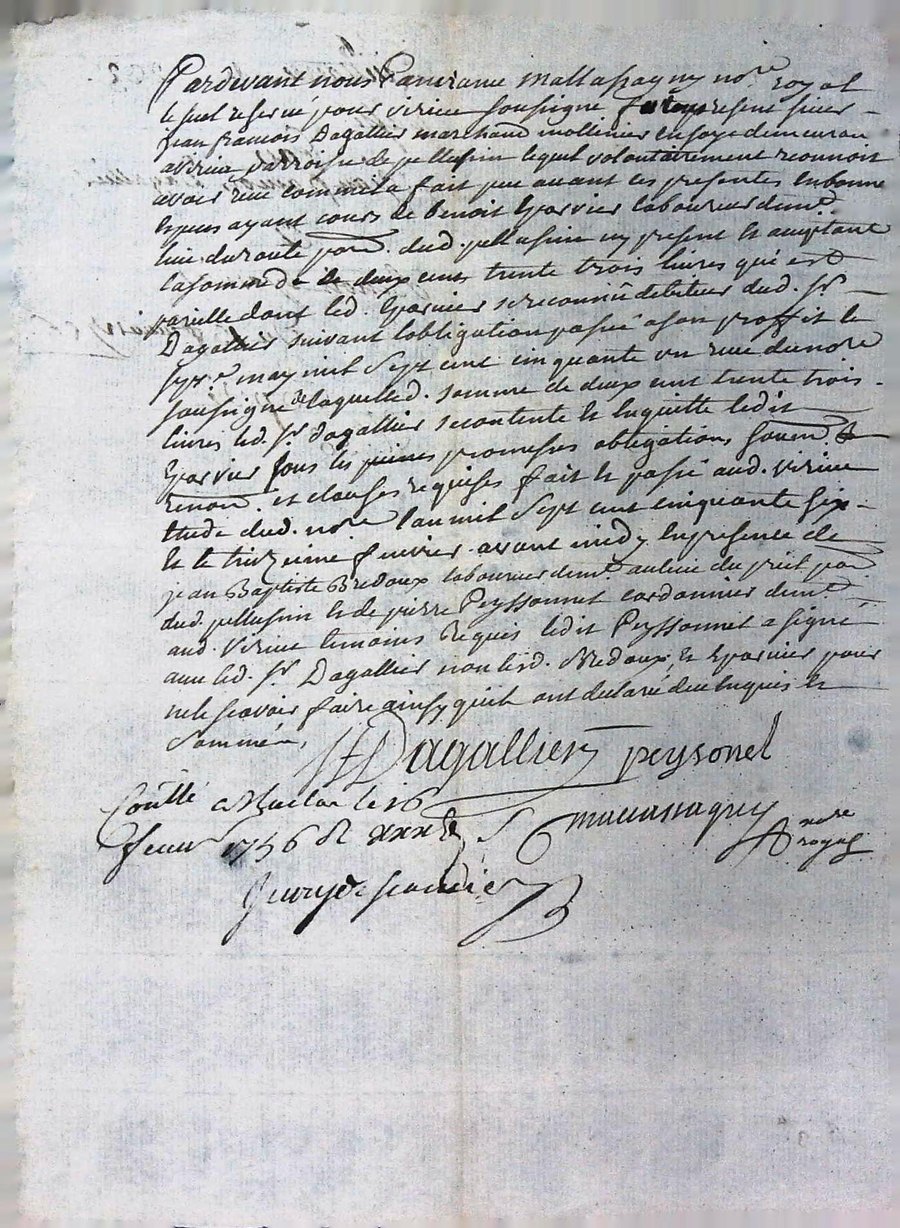 Pardevant nous mattassagny no.re royal
le seul reservé pour virieu soussigne fut present sieur
jean francois Dagallier marchand mollinier en soye demeurant
a virieu parroisse de pellussin lequel volontairement reconnoit
avoir reçu comme la fait peu avant ces presentes en bonne
especes ayant cours de benoit laboureur demt.
lieu du par. dud. pellussin cy present et acceptant
la somme de deux cent trente trois livres qui est
pareille dont led. se reconnû debiteur dud. Sr
Dagallier suivant l'obligation passé a son proffit le
may mil sept cent cinquante un reçue du no.re
soussigne de laquelled. somme de deux cent trente trois
livres led. Sr dagallier se contente et en quitte ledit
sous les peines promesses obligations
renon. et clauses requises fait et passé aud. virieu
etude dud. no.re l'an mil sept cent cinquante six
et le treizieme fevrier avant midy en presence de
jean Baptiste Bredoux laboureur demt. au lieu du par
dud. pellussin et de pierre Peyssonnet cordonnier demt
aud. virieu temoins requis ledit Peyssonnet a signé
avec led. Sr Dagallier non lesd. Bredoux et pour
ne le scavoir faire ainsy qu'ils ont declaré de ce enquis et
sommés,
Dagallier peysonel
Conttlé a le 16
fevr 1756 mattassagny no.re
royal